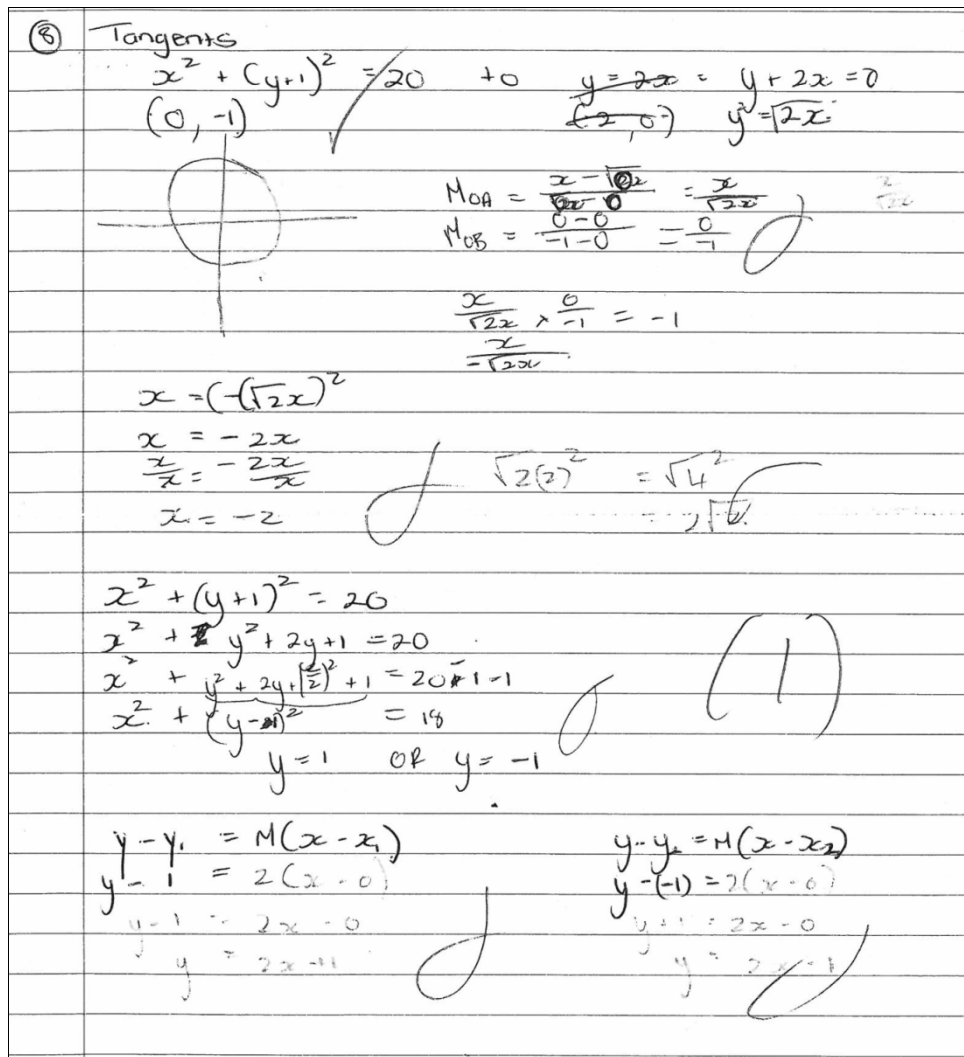 ⑧ Tangents
x² + (y+1)² = 20 to y = 2x = y + 2x = 0
(0, -1) (2, 0) y² = √2x
M_OA = = x/√2x
M_OB = 0-0/-1-0 = 0/-1
x/√2x × 0/-1 = -1
x/-√2x
x = (-(√2x)²
x = -2x
x/x = -2x/x
x = -2
√2(2)² = √4²
x² + (y+1)² = 20
x² + y² + 2y + 1 = 20
x² + y² + 2y + (2/2)² + 1 = 20 - 1 - 1
x² + (y-1)² = 18
y = 1 OR y = -1
(1)
y - y₁ = M(x - x₁)
y - 1 = 2(x - 0)
y - 1 = 2x - 0
y = 2x + 1
y - y₂ = M(x - x₂)
y - (-1) = 2(x - 0)
y + 1 = 2x - 0
y = 2x - 1